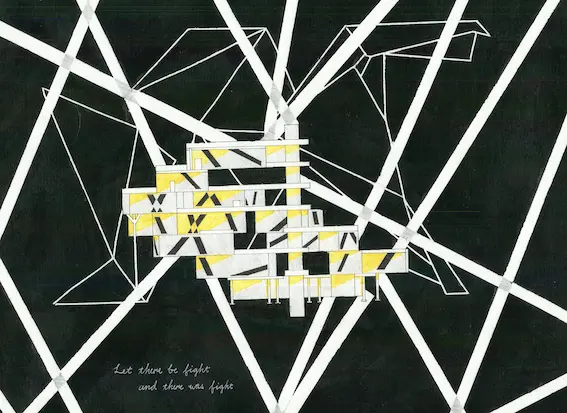 Let there be fight
and there was fight